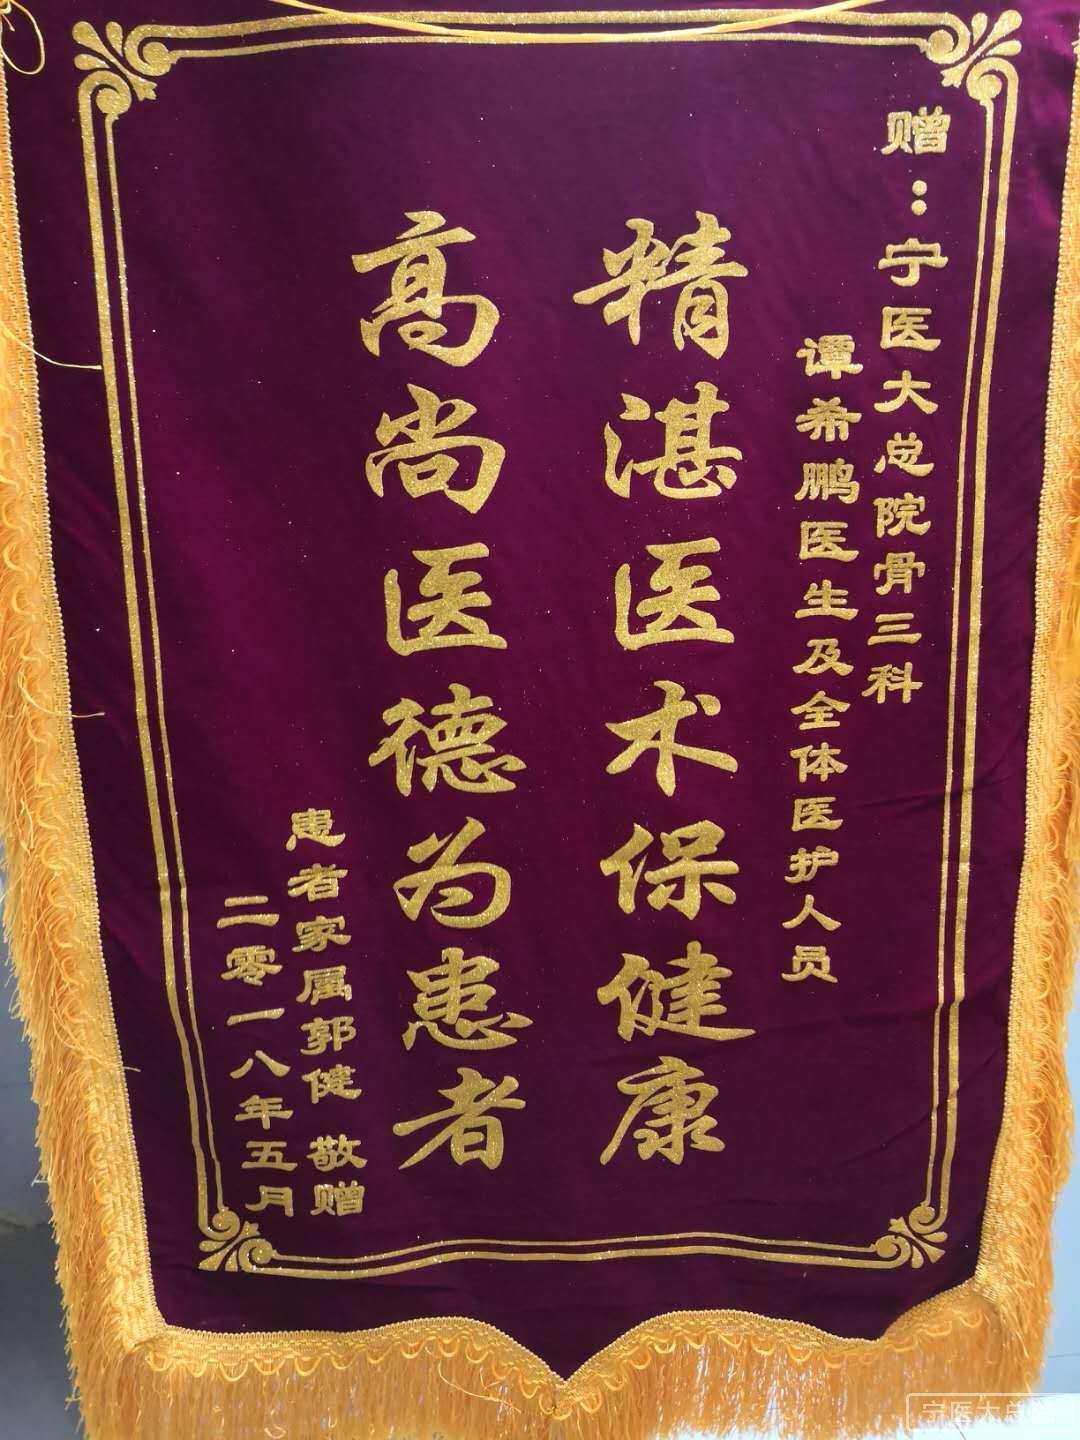 赠：宁医大总院骨三科
谭希鹏医生及全体医护人员
精湛医术保健康
高尚医德为患者
患者家属郭健 敬赠
二零一八年五月
宁医大总院